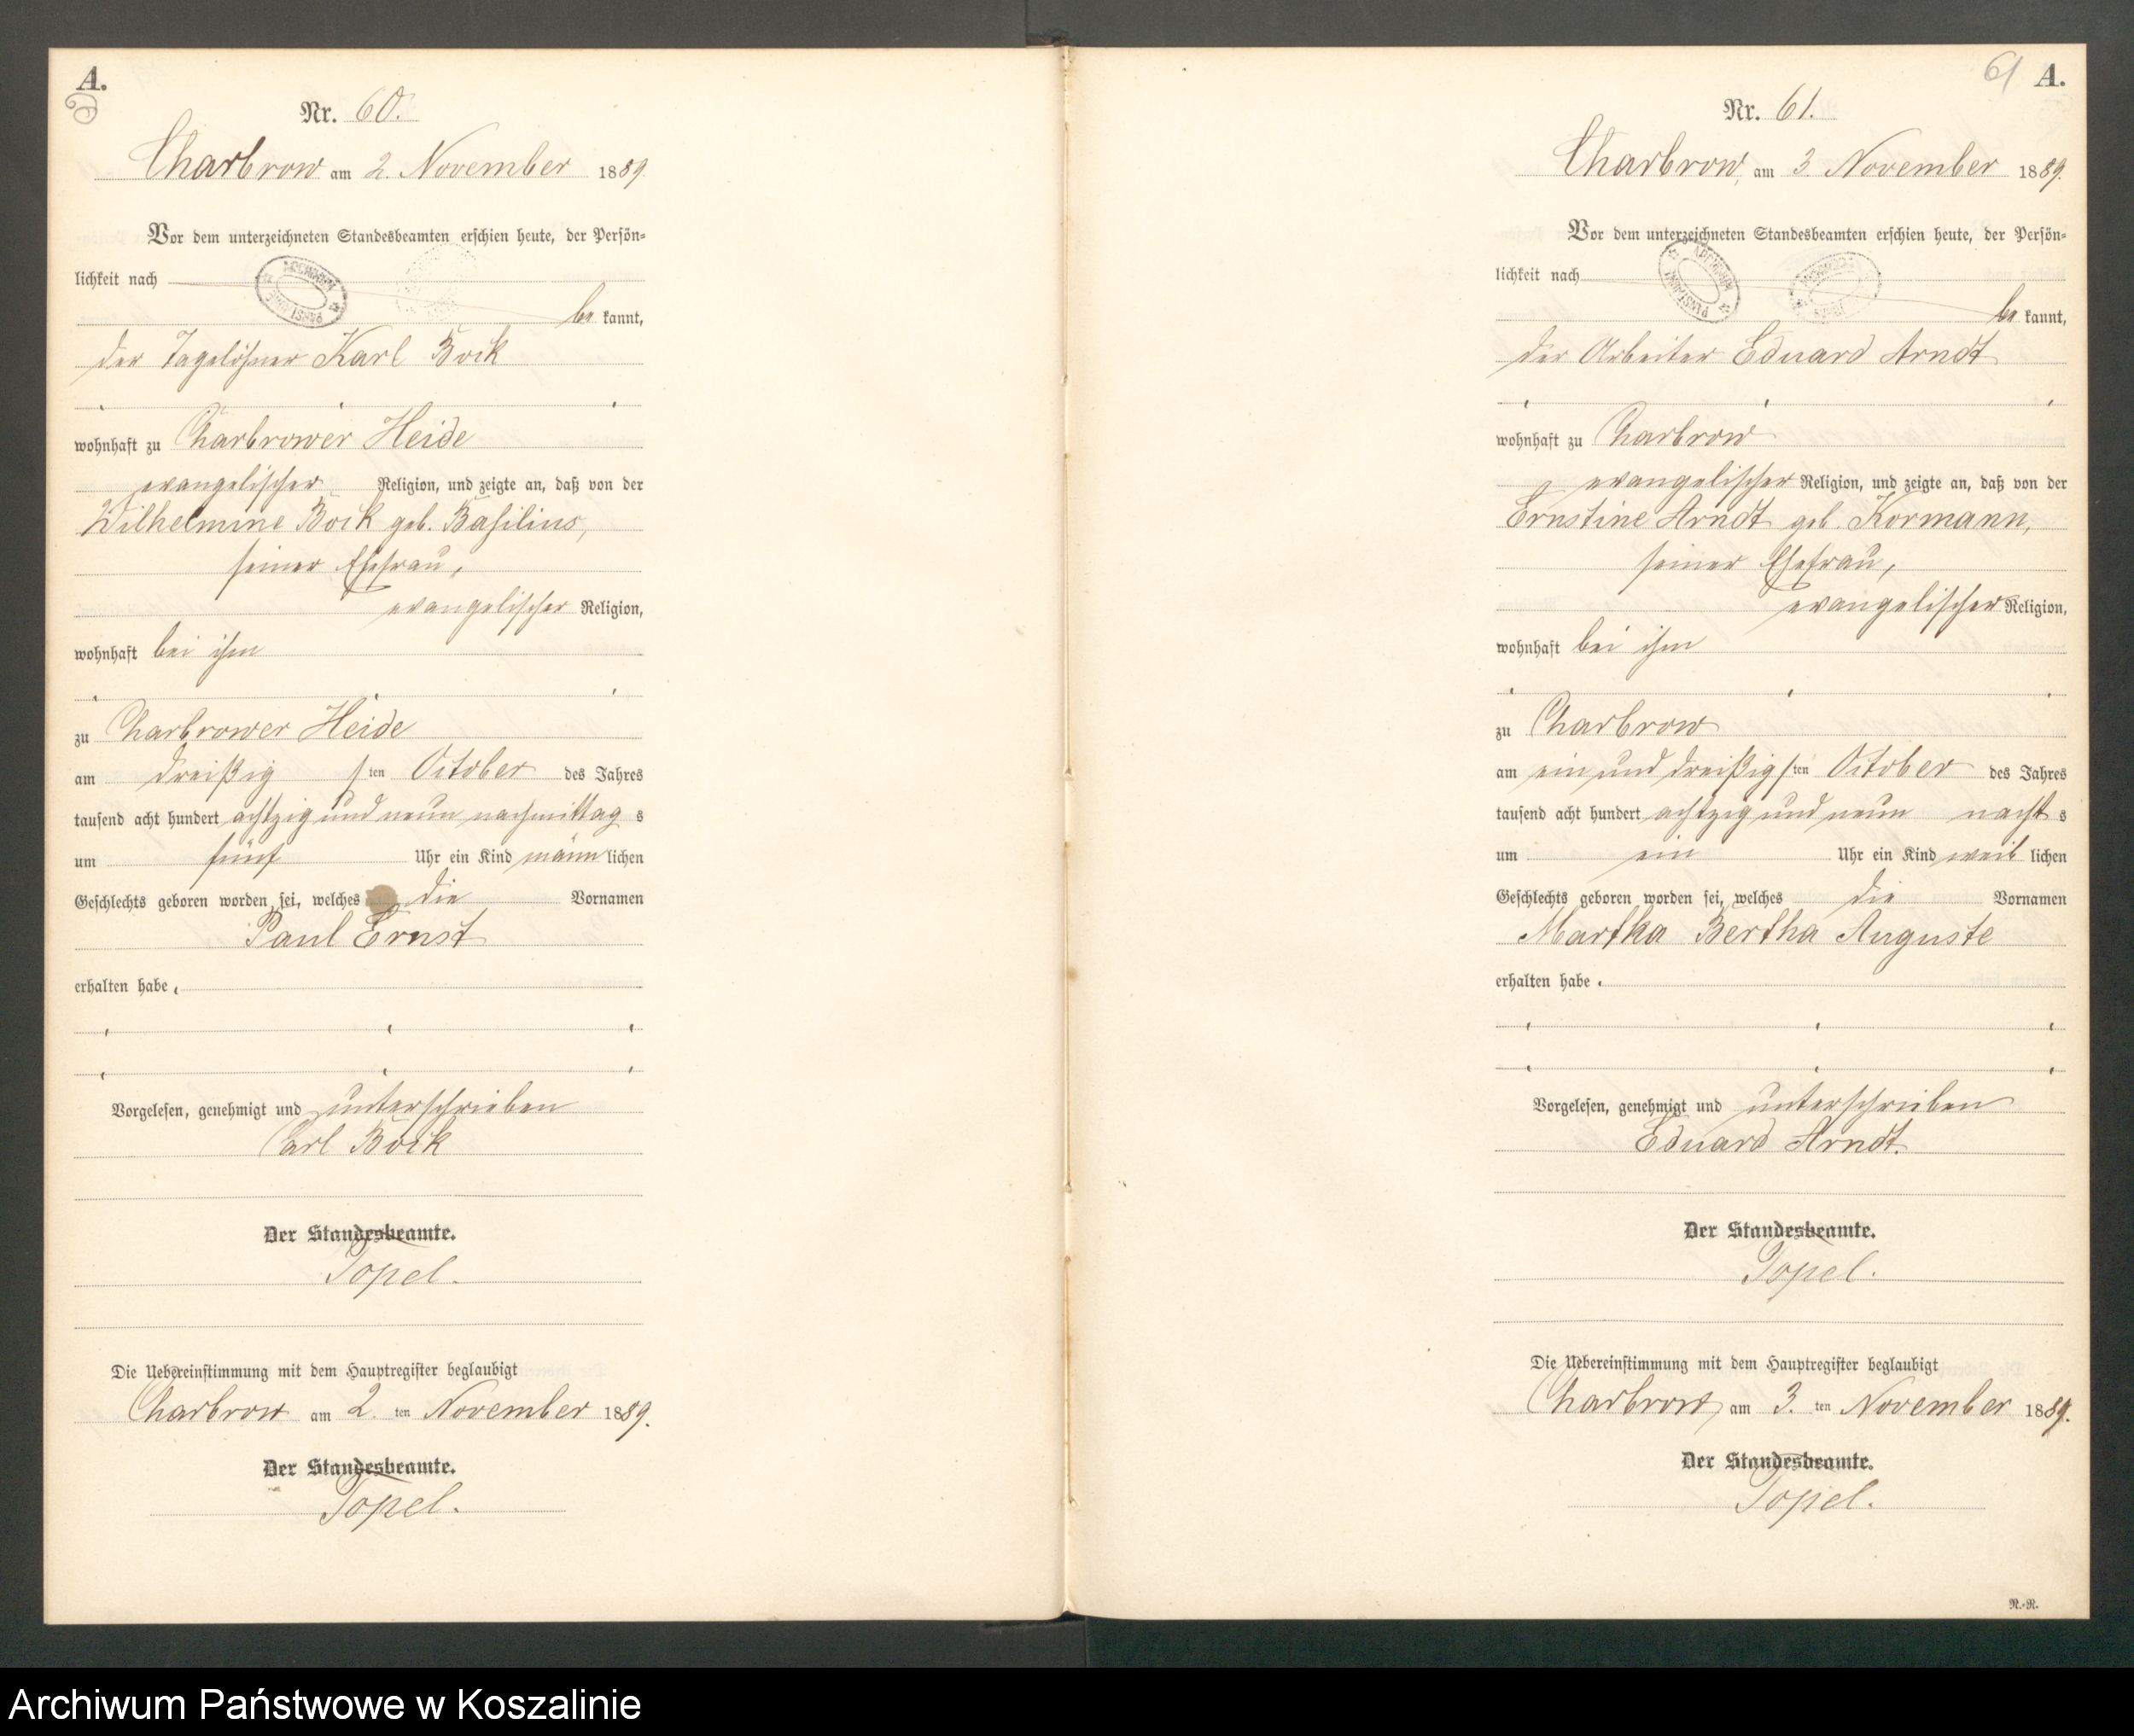 A.
Nr. 60.
Charbrow am 2. November 1889.
Vor dem unterzeichneten Standesbeamten erschien heute, der Persön-
lichkeit nach
be kannt,
der Tagelöhner Karl Bock
wohnhaft zu Charbrower Heide
evangelischer Religion, und zeigte an, daß von der
Wilhelmine Bock geb. Basilius,
seiner Ehefrau,
evangelischer Religion,
wohnhaft bei ihm
zu Charbrower Heide
am dreißig sten October des Jahres
tausend acht hundert achtzig und neun nachmittag s
um fünf Uhr ein Kind männ lichen
Geschlechts geboren worden sei, welches die Vornamen
Paul Ernst
erhalten habe.
Vorgelesen, genehmigt und unterschrieben
Carl Bock
Der Standesbeamte.
Topel.
Die Uebereinstimmung mit dem Hauptregister beglaubigt
Charbrow am 2. ten November 1889.
Der Standesbeamte.
Topel.
61 A.
Nr. 61.
Charbrow, am 3. November 1889.
Vor dem unterzeichneten Standesbeamten erschien heute, der Persön-
lichkeit nach
be kannt,
der Arbeiter Eduard Arndt
wohnhaft zu Charbrow
evangelischer Religion, und zeigte an, daß von der
Ernstine Arndt geb. Kormann,
seiner Ehefrau,
evangelischer Religion,
wohnhaft bei ihm
zu Charbrow
am ein und dreißig sten October des Jahres
tausend acht hundert achtzig und neun nacht s
um ein Uhr ein Kind weib lichen
Geschlechts geboren worden sei, welches die Vornamen
Martha Bertha Auguste
erhalten habe.
Vorgelesen, genehmigt und unterschrieben
Eduard Arndt.
Der Standesbeamte.
Topel.
Die Uebereinstimmung mit dem Hauptregister beglaubigt
Charbrow, am 3. ten November 1889.
Der Standesbeamte.
Topel.
R.-R.
Archiwum Państwowe w Koszalinie